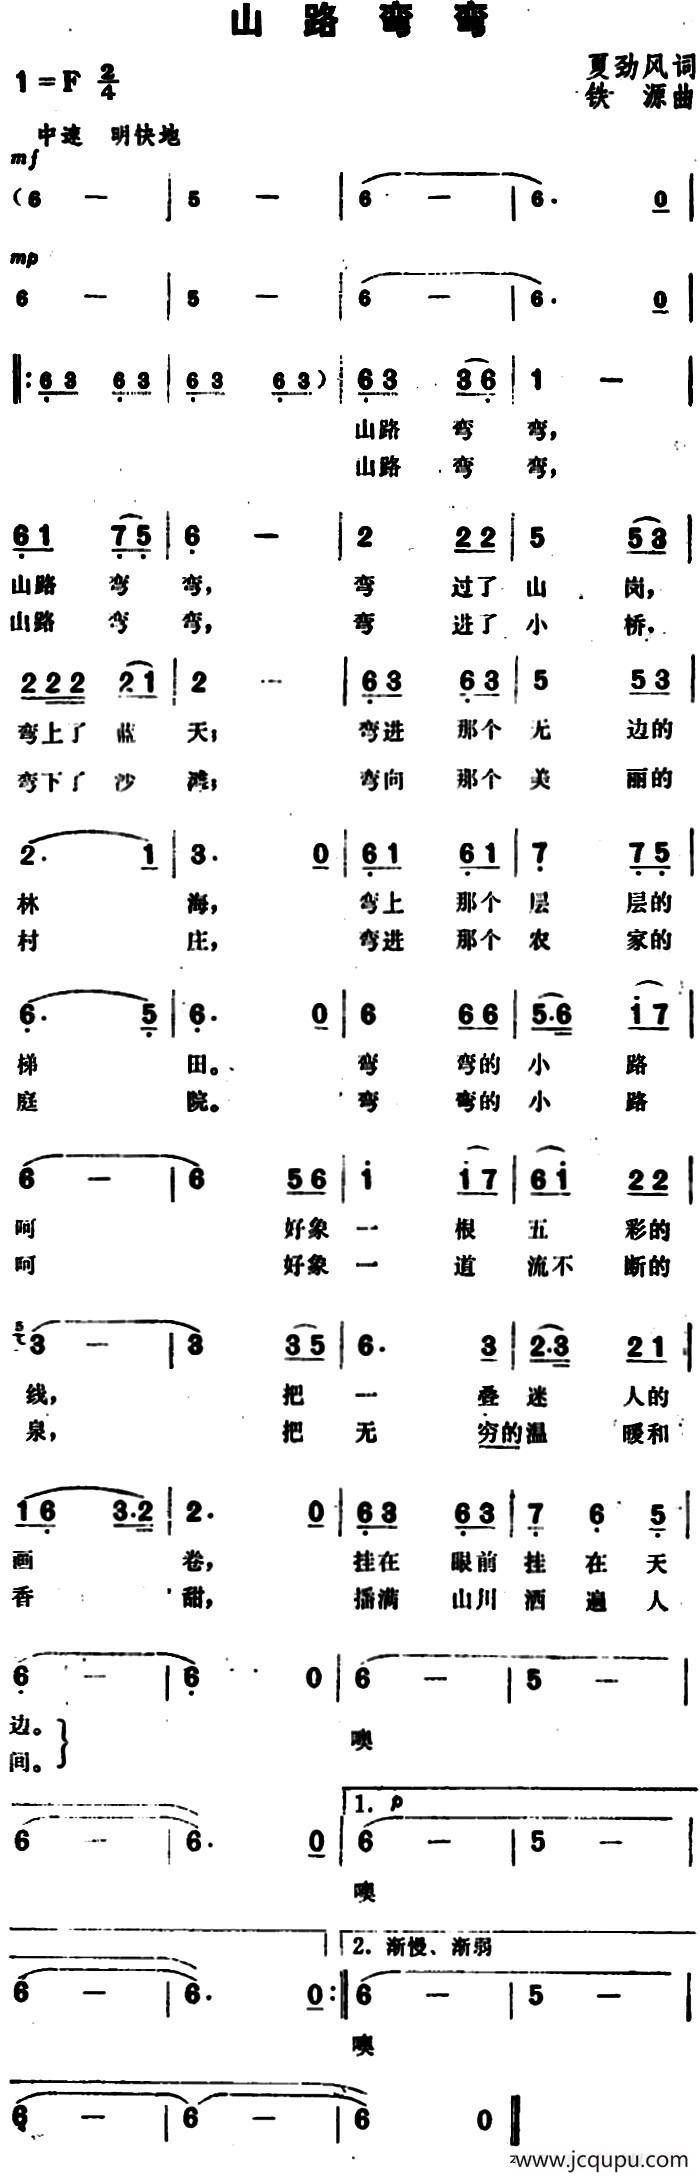 山路弯弯
1=F 2/4
夏劲风词
铁源曲
中速 明快地
mf
(6 — | 5 — | 6 — | 6. 0 |
mp
6 — | 5 — | 6 — | 6. 0 |
‖: 63 63 | 63 63) | 63 36 | 1 — |
山路 弯 弯，
山路 弯 弯，
61 75 | 6 — | 2 22 | 5 53 |
山路 弯 弯， 弯 过了 山 岗，
山路 弯 弯， 弯 进了 小 桥，
222 21 | 2 — | 63 63 | 5 53 |
弯上了 蓝 天； 弯进 那个 无 边的
弯下了 沙 滩； 弯向 那个 美 丽的
2. 1 | 3. 0 | 61 61 | 7 75 |
林 海， 弯上 那个 层 层的
村 庄， 弯进 那个 农 家的
6. 5 | 6. 0 | 6 66 | 5.6 i7 |
梯 田。 弯 弯的 小 路
庭 院。 弯 弯的 小 路
6 — | 6 56 | i i7 | 6i 22 |
呵 好象 一 根 五 彩的
呵 好象 一 道 流不 断的
5 3 — | 3 35 | 6. 3 | 2.3 21 |
线， 把 一 叠 迷 人的
泉， 把 无 穷的 温 暖和
16 3.2 | 2. 0 | 63 63 | 7 6 5 |
画 卷， 挂在 眼前 挂 在 天
香 甜， 播满 山川 洒 遍 人
6 — | 6 0 | 6 — | 5 — |
边。} 噢
间。
6 — | 6. 0 | 1. p 6 — | 5 — |
噢
2. 渐慢、渐弱
6 — | 6. 0 :‖ 6 — | 5 — |
噢
6 — | 6 — | 6 0 ‖
www.jcqupu.com